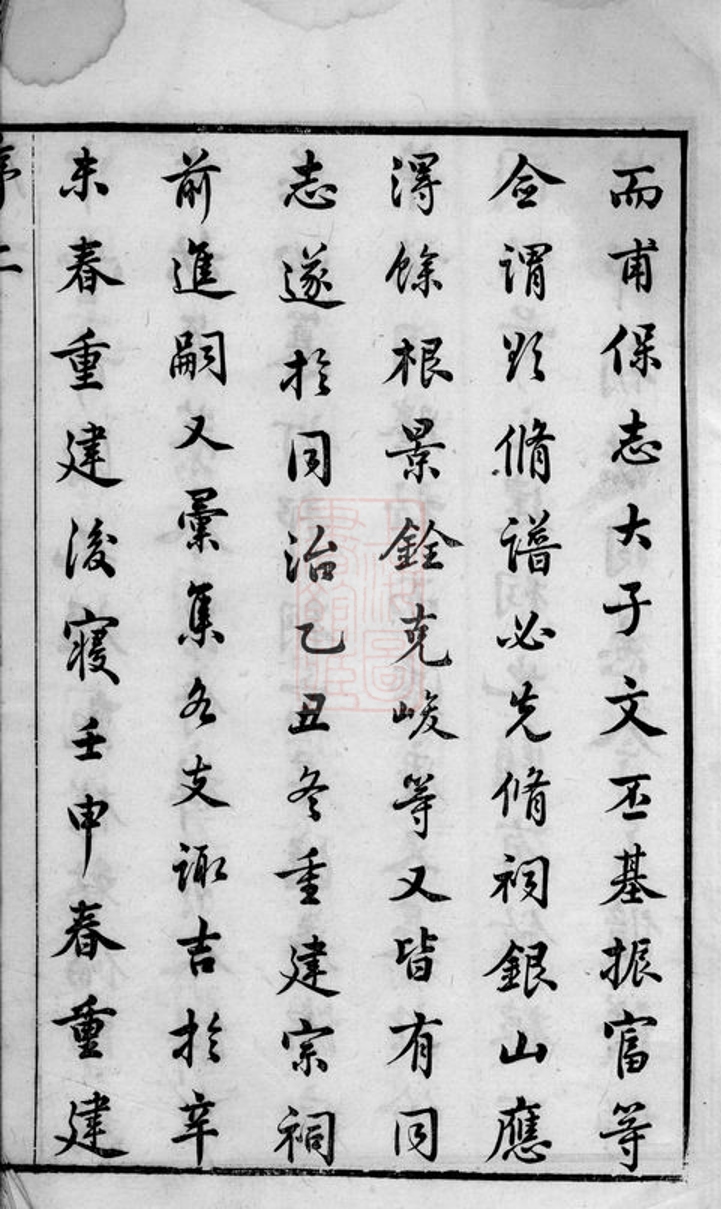 而甫保志大子文丕基振富等
僉謂欲脩譜必先脩祠銀山應
潯餘根景銓克峻等又皆有同
志遂於同治乙丑冬重建宗祠
前進嗣又彙集各支諏吉於辛
未春重建後寢壬申春重建
序 二